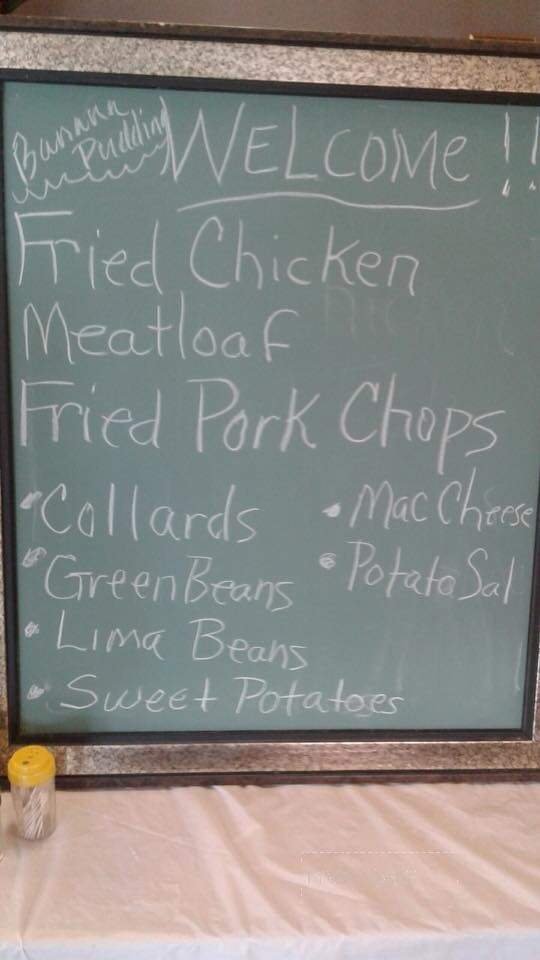 Banana
Pudding
WELCOME !!
Fried Chicken
Meatloaf
Fried Pork Chops
• Collards
• Mac Cheese
• Green Beans
• Potato Sal
• Lima Beans
• Sweet Potatoes